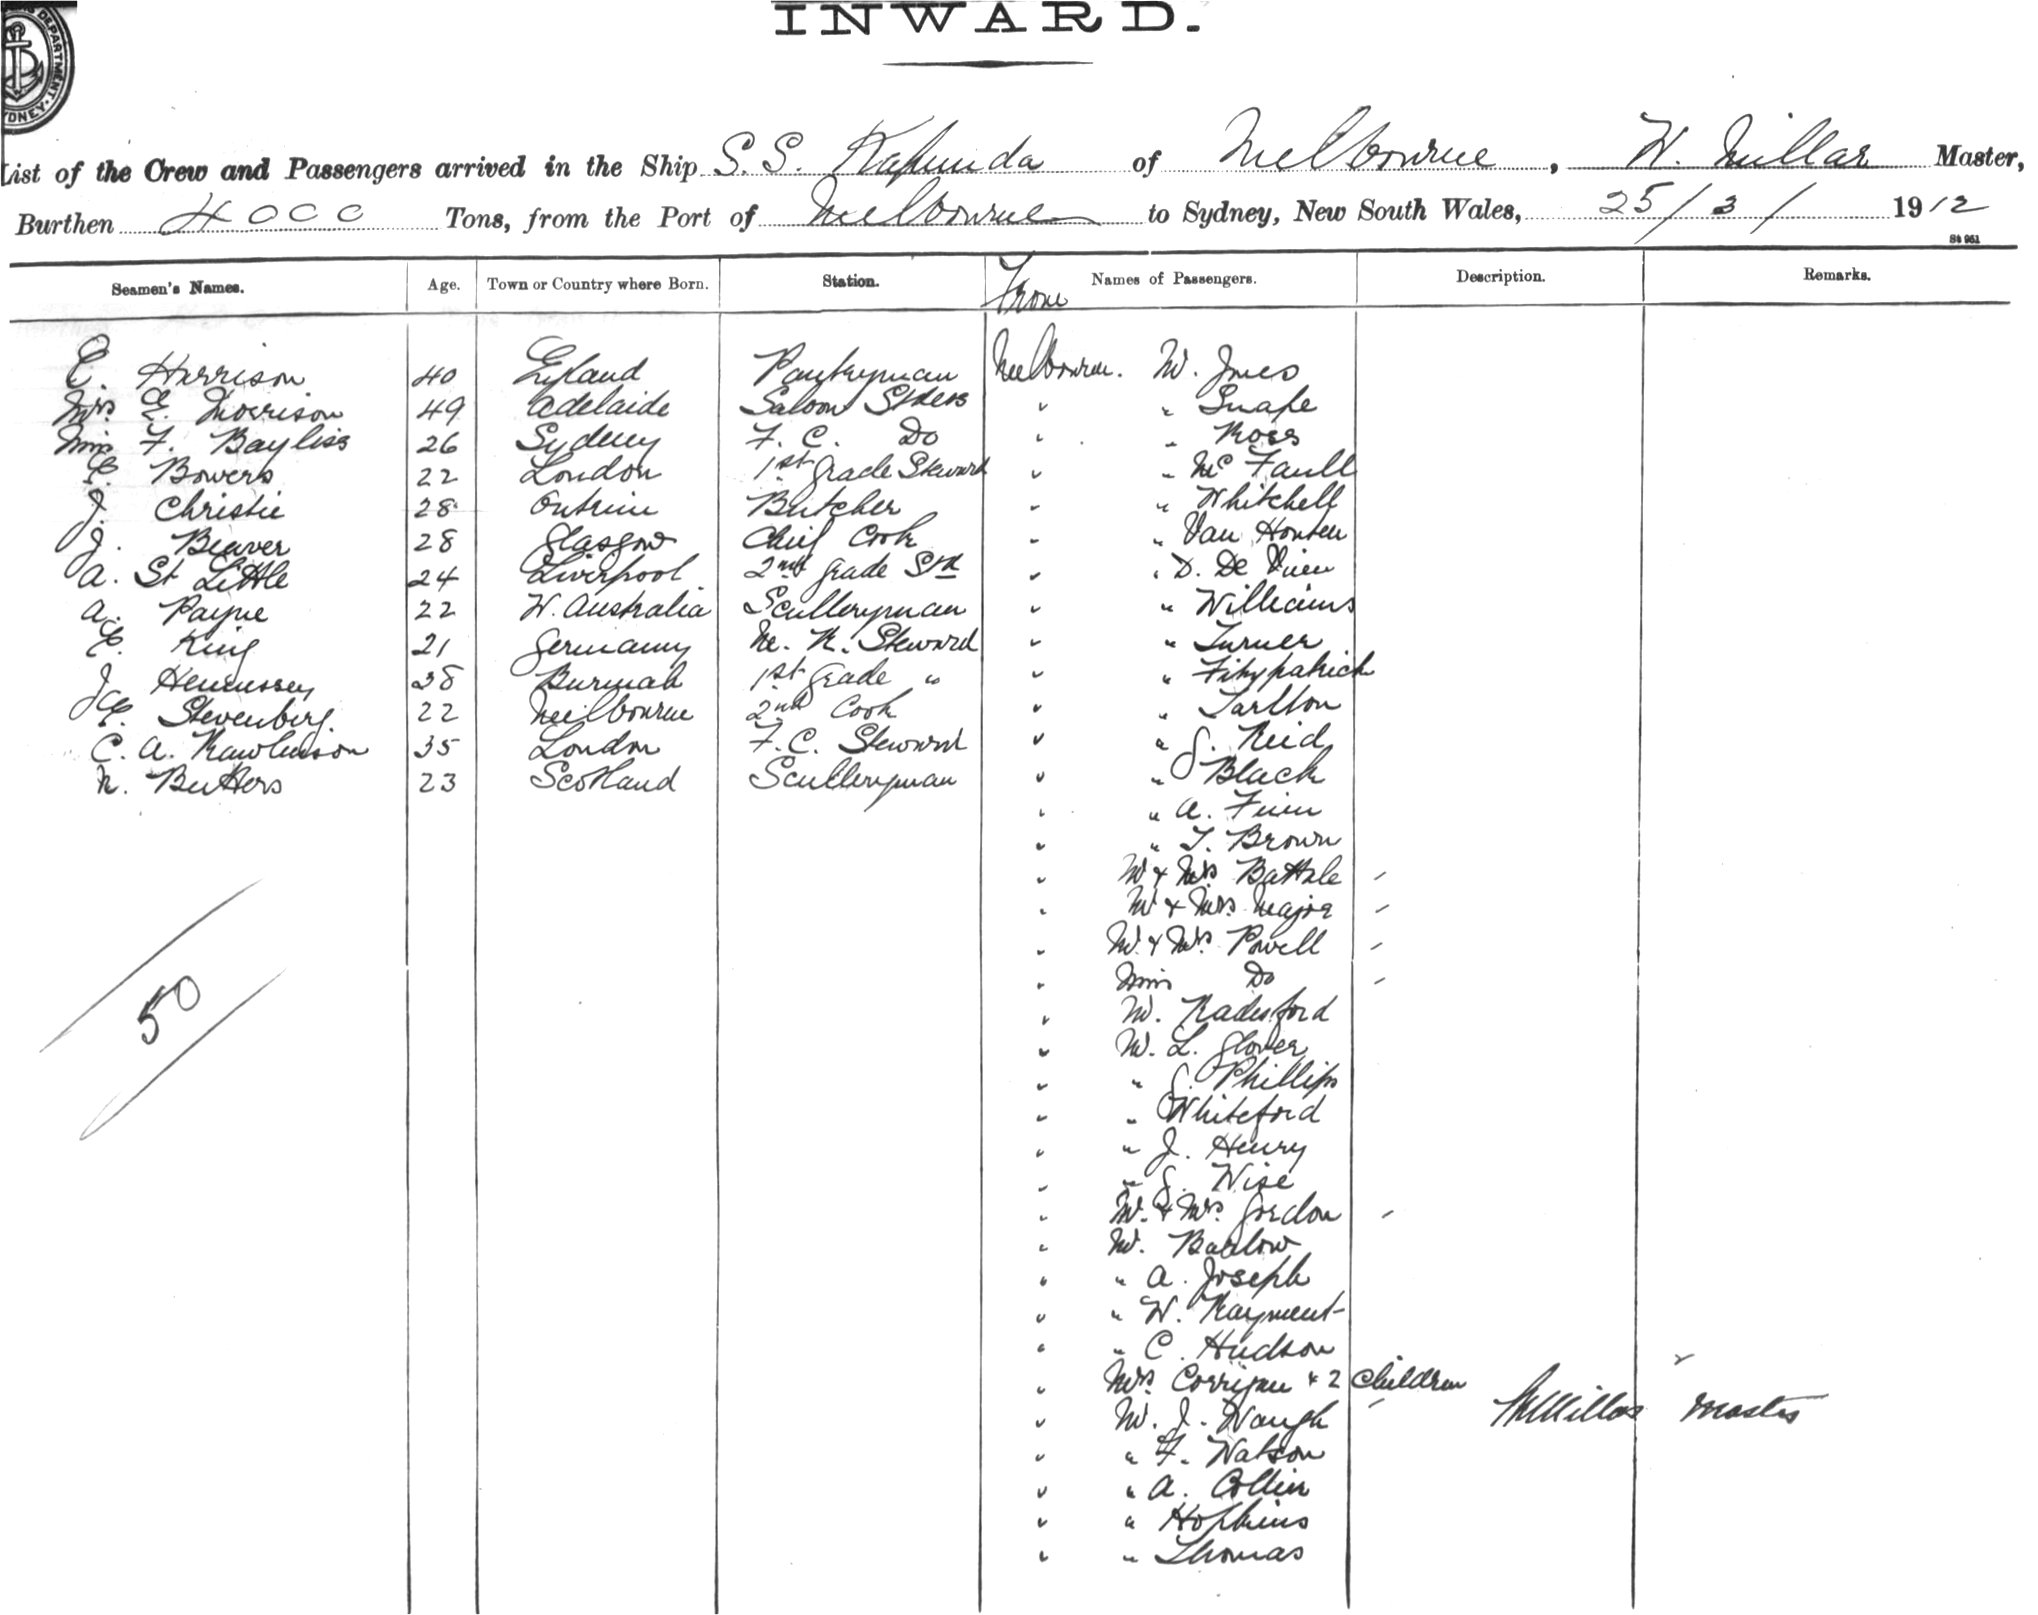 INWARD.
DEPARTMENT. SYDNEY.
List of the Crew and Passengers arrived in the Ship S.S. Kapunda of Melbourne, W. Millar Master,
Burthen 4000 Tons, from the Port of Melbourne to Sydney, New South Wales, 25/3/1912
St 961
Seamen's Names. Age. Town or Country where Born. Station. From Names of Passengers. Description. Remarks.
E. Harrison 40 England Pantryman Melbourne. Mr. Jones
Mrs. E. Morrison 49 Adelaide Saloon Stdess " " Snape
Miss F. Bayliss 26 Sydney F. C. Do " " Ross
E. Bowers 22 London 1st grade Steward " " Mc Faull
J. Christie 28 Outrim Butcher " " Whitchell
J. Beaver 28 Glasgow Chief Cook " " Van Houten
A. St Little 24 Liverpool 2nd grade Std " " D. De
A. Payne 22 W. Australia Sculleryman " " Williams
E. King 21 Germany M. R. Steward " " Turner
J. Hennessey 38 Burmah 1st grade " " " Fitzpatrick
E. Stevenberg. 22 Melbourne 2nd Cook " " Tarlton
C. A. Rawlinson 35 London F. C. Steward " " J. Reid
Butters 23 Scotland Sculleryman " " Black
" " A.
" " T. Brown
" Mr & Mrs Battle
" Mr & Mrs. Major
" Mr. & Mrs. Powell
" Miss Do
" Mr. Radesford
" Mr. L. Glover
" " J. Phillips
" " Whiteford
" " J. Henry
" " J. Wise
" Mr. & Mrs. Gordon
" Mr. Barlow
" " A. Joseph
" " W. Rayment
" " C. Hudson
" Mrs. Corrigan & 2 children
" Mr. J. Waugh W Millar Master
" " F. Watson
" " A. Collin
" " Hopkins
" " Thomas
50